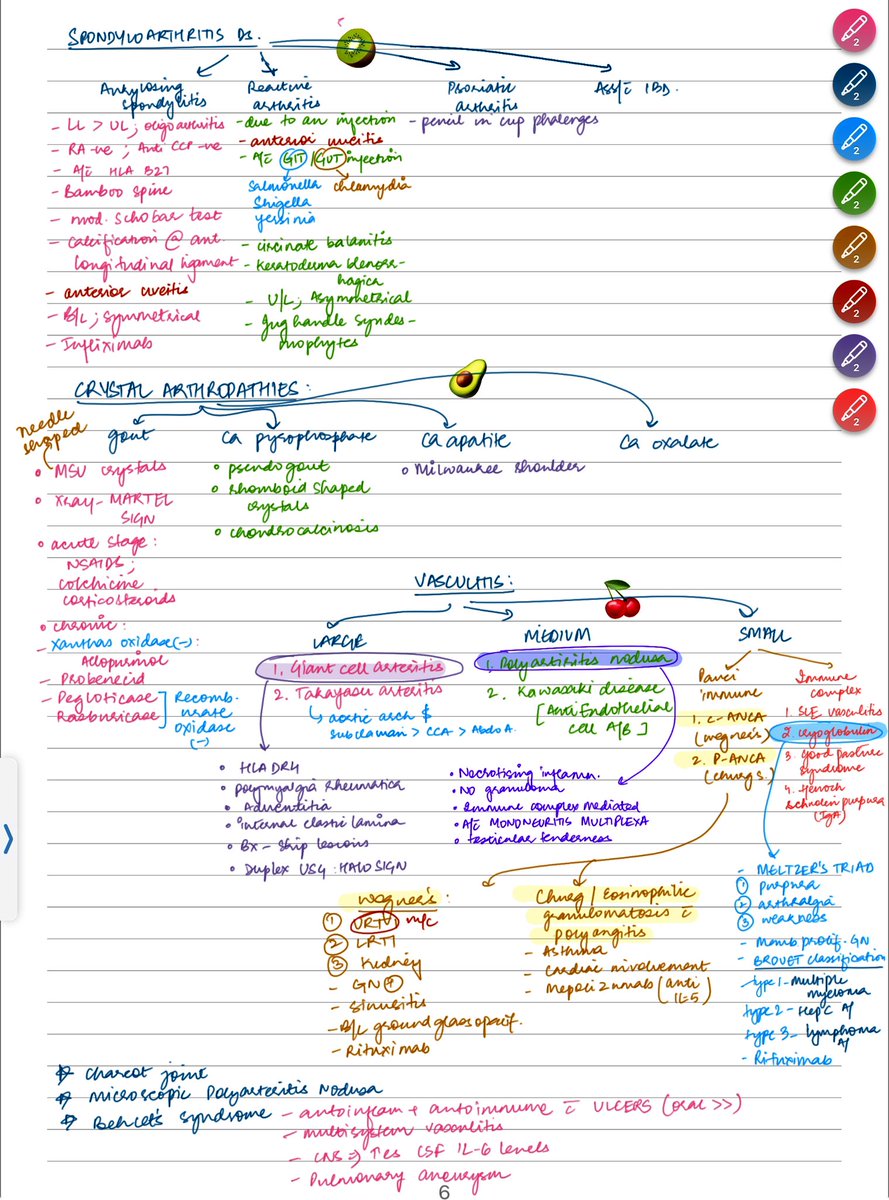 SPONDYLOARTHRITIS Ds.
Ankylosing spondylitis
- LL > UL; oligoarthritis
- RA -ve ; Anti CCP -ve
- A/c̄ HLA B27
- Bamboo spine
- mod. schobar test
- calcification @ ant.
longitudinal ligament
- anterior uveitis
- B/L ; symmetrical
- Infliximab
Reactive arthritis
- due to an infection
- anterior uveitis
- A/c̄ GIT / GUT infection
Salmonella
Shigella
yersinia
chlamydia
- circinate balanitis
- Keratoderma blenorr-
hagica
- U/L ; Asymmetrical
- Jug handle Syndes-
mophytes
Psoriatic arthritis
- pencil in cup phalenges
Ass/c̄ IBD.
CRYSTAL ARTHROPATHIES :
needle shaped
gout
• MSU crystals
• Xray - MARTEL
SIGN
• acute stage :
NSAIDS ;
colchicine
corticosteroids
• chronic :
- Xanthas oxidase (-) :
Allopurinol
- Probenecid
- Pegloticase
Rasburicase
Recomb.
urate
oxidase
(-)
Ca pyrophosphate
• pseudogout
• rhomboid shaped
crystals
• chondrocalcinosis
Ca apatite
• Milwaukee shoulder
Ca oxalate
VASCULITIS :
LARGE
1. Giant cell arteritis
2. Takayasu arteritis
↳ aortic arch &
subclavian > CCA > Abdo A.
• HLA DR4
• polymyalgia rheumatica
• Adventitia
• internal elastic lamina
• Bx - skip lesions
• Duplex USG : HALO SIGN
MEDIUM
1. Polyartiritis nodusa
2. Kawasaki disease
[Anti Endothelial
cell A/B]
• Necrotising inflamm.
• NO granuloma
• Immune complex mediated
• A/c̄ MONONEURITIS MULTIPLEXA
• testicular tenderness
SMALL
Pauci
immune
1. C-ANCA
(wegner's)
2. P-ANCA
(churg s.)
Immune
complex
1. SLE vasculitis
2. cryoglobulin
3. Good pasture
syndrome
4. Henoch
Schnolein purpura
(IgA)
- MELTZER'S TRIAD
① purpura
② arthralgia
③ weakness
- Memb prolif. GN
- BROUET classification
type 1 - multiple
myeloma
type 2 - Hep C A/
type 3 - lymphoma
A/
- Rituximab
Wegner's :
① URTI m/c
② LRTI
③ Kidney
- GN +
- Sinusitis
- B/L ground glass opacif.
- Rituximab
Churg / Eosinophilic
granulomatosis c̄
polyangitis
- Asthma
- Cardiac involvement
- Mepolizumab (anti
IL-5)
☆ Charcot joint
☆ microscopic Polyarteritis Nodusa
☆ Behcet's Syndrome - autoinflam + autoimmune c̄ ULCERS (oral >>)
- multisystem vasculitis
- CNS ⇒ ↑es CSF IL-6 levels
- Pulmonary aneurysm
6
2
2
2
2
2
2
2
2